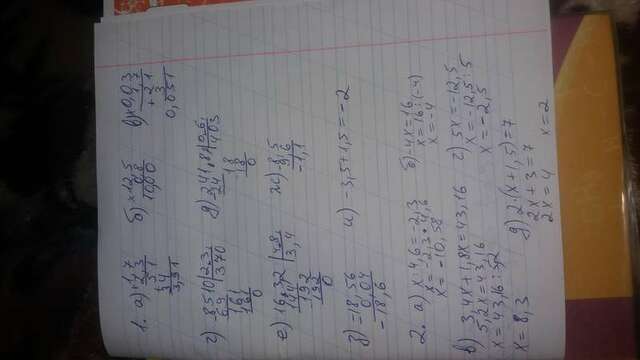 1. а) × 1,7 б) × 12,5 в) × 0,03
2,3 0,8 1,7
51 10,00 + 21
34 3
3,91 0,051
г) 8510 | 2,3 д) 241,8 | 0,6
69 3,70 24 403
161 18
161 18
0 0
е) 16,32 | 4,8 ж) - 8,5
144 3,4 9,6
192 -1,1
192
0
з) - 18,56 и) -3,5+1,5=-2
0,04
-18,6
2. а) x:4,6=-2,3 б) -4x=16
x=-2,3·4,6 x=16:(-4)
x=-10,58 x=-4
в) 3,4x+1,8x=43,16 г) 5x=-12,5
5,2x=43,16 x=-12,5:5
x=43,16:5,2 x=-2,5
x=8,3 д) 2·(x+1,5)=7
2x+3=7
2x=4 x=2